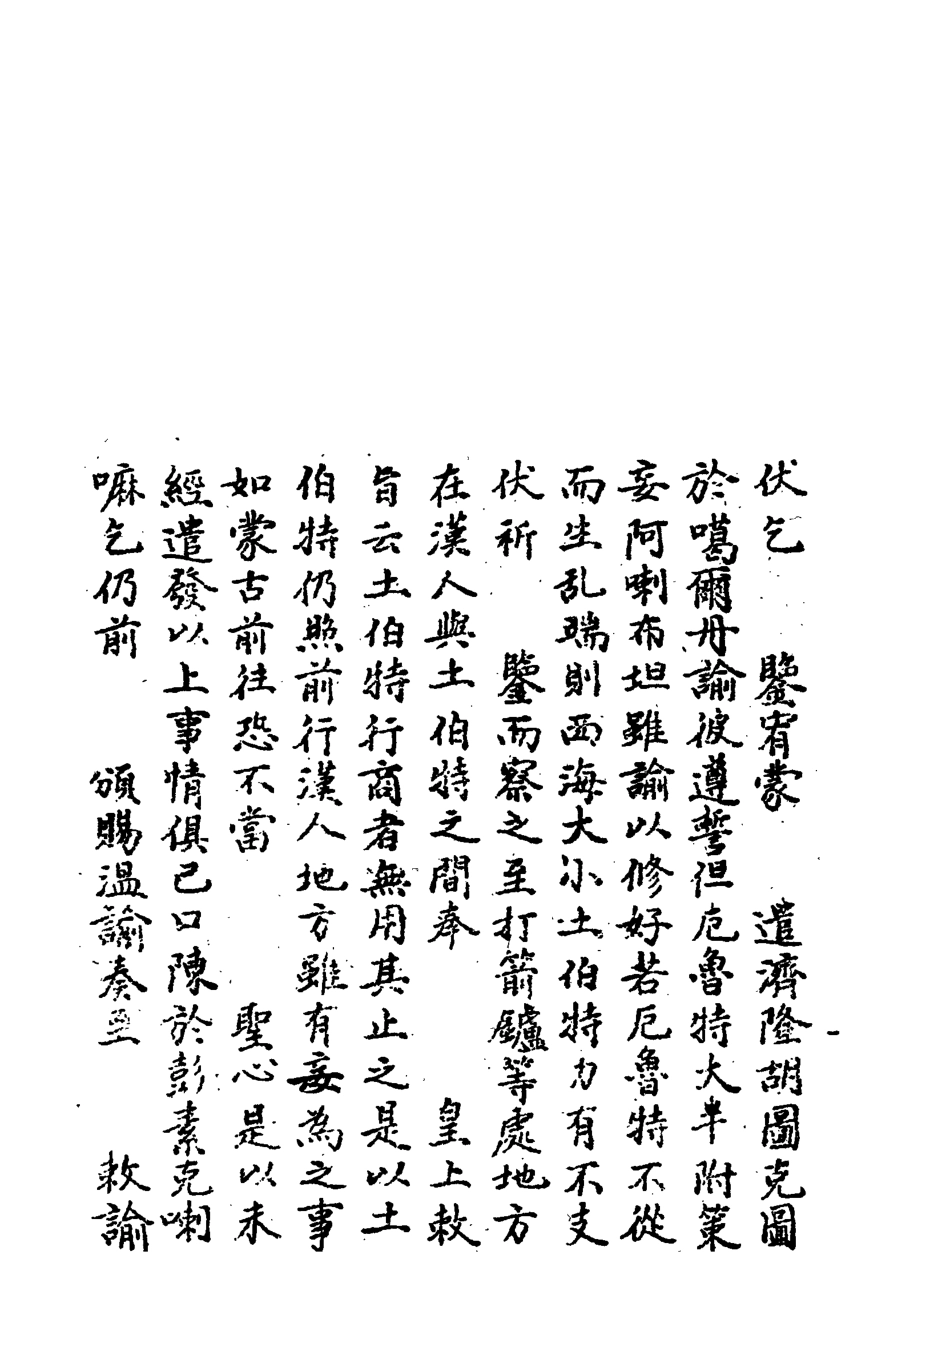 伏乞　鑒宥蒙　遣濟隆胡圖克圖
於噶爾丹諭彼遵誓但厄魯特大半附策
妄阿喇布坦雖諭以修好若厄魯特不從
而生乱端則西海大小土伯特力有不支
伏祈　鑒而察之至打箭鑪等處地方
在漢人與土伯特之間奉　皇上敕
旨云土伯特行商者無用其止之是以土
伯特仍照前行漢人地方雖有妄為之事
如蒙古前往恐不當　聖心是以未
經遣發以上事情俱已口陳於彭素克喇
嘛乞仍前　頒賜溫諭奏至　敕諭